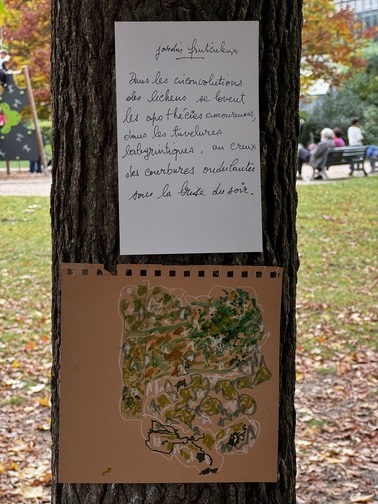 jardin fruticuleux
Dans les circonvolutions
des lichens se lovent
les apothécies amoureuses,
dans les tavelures
labyrintiques, au creux
des courbures ondulantes
sous la brise du soir.